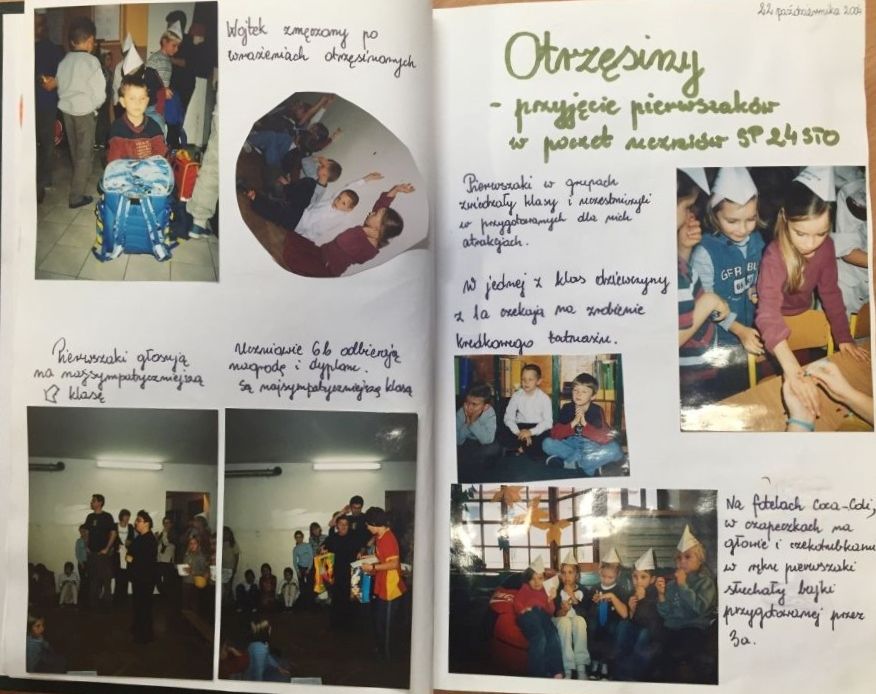 Wojtek zmęczony po
wrażeniach otrzęsinowych
Pierwszaki głosują
na najsympatyczniejszą
klasę
Uczniowie 6b odbierają
nagrodę i dyplom.
Są najsympatyczniejszą klasą
22 października 200
Otrzęsiny
- przyjęcie pierwszaków
w poczet uczniów SP 24 STO
Pierwszaki w grupach
zwiedzały klasy i uczestniczyli
w przygotowanych dla nich
atrakcjach.
W jednej z klas dziewczyny
z 1a czekają na zrobienie
kredkowego tatuażu.
GER BU
Na fotelach Coca-Coli,
w czapeczkach na
głowie i czekotubkami
w ręku pierwszaki
słuchały bajki
przygotowanej przez
3a.